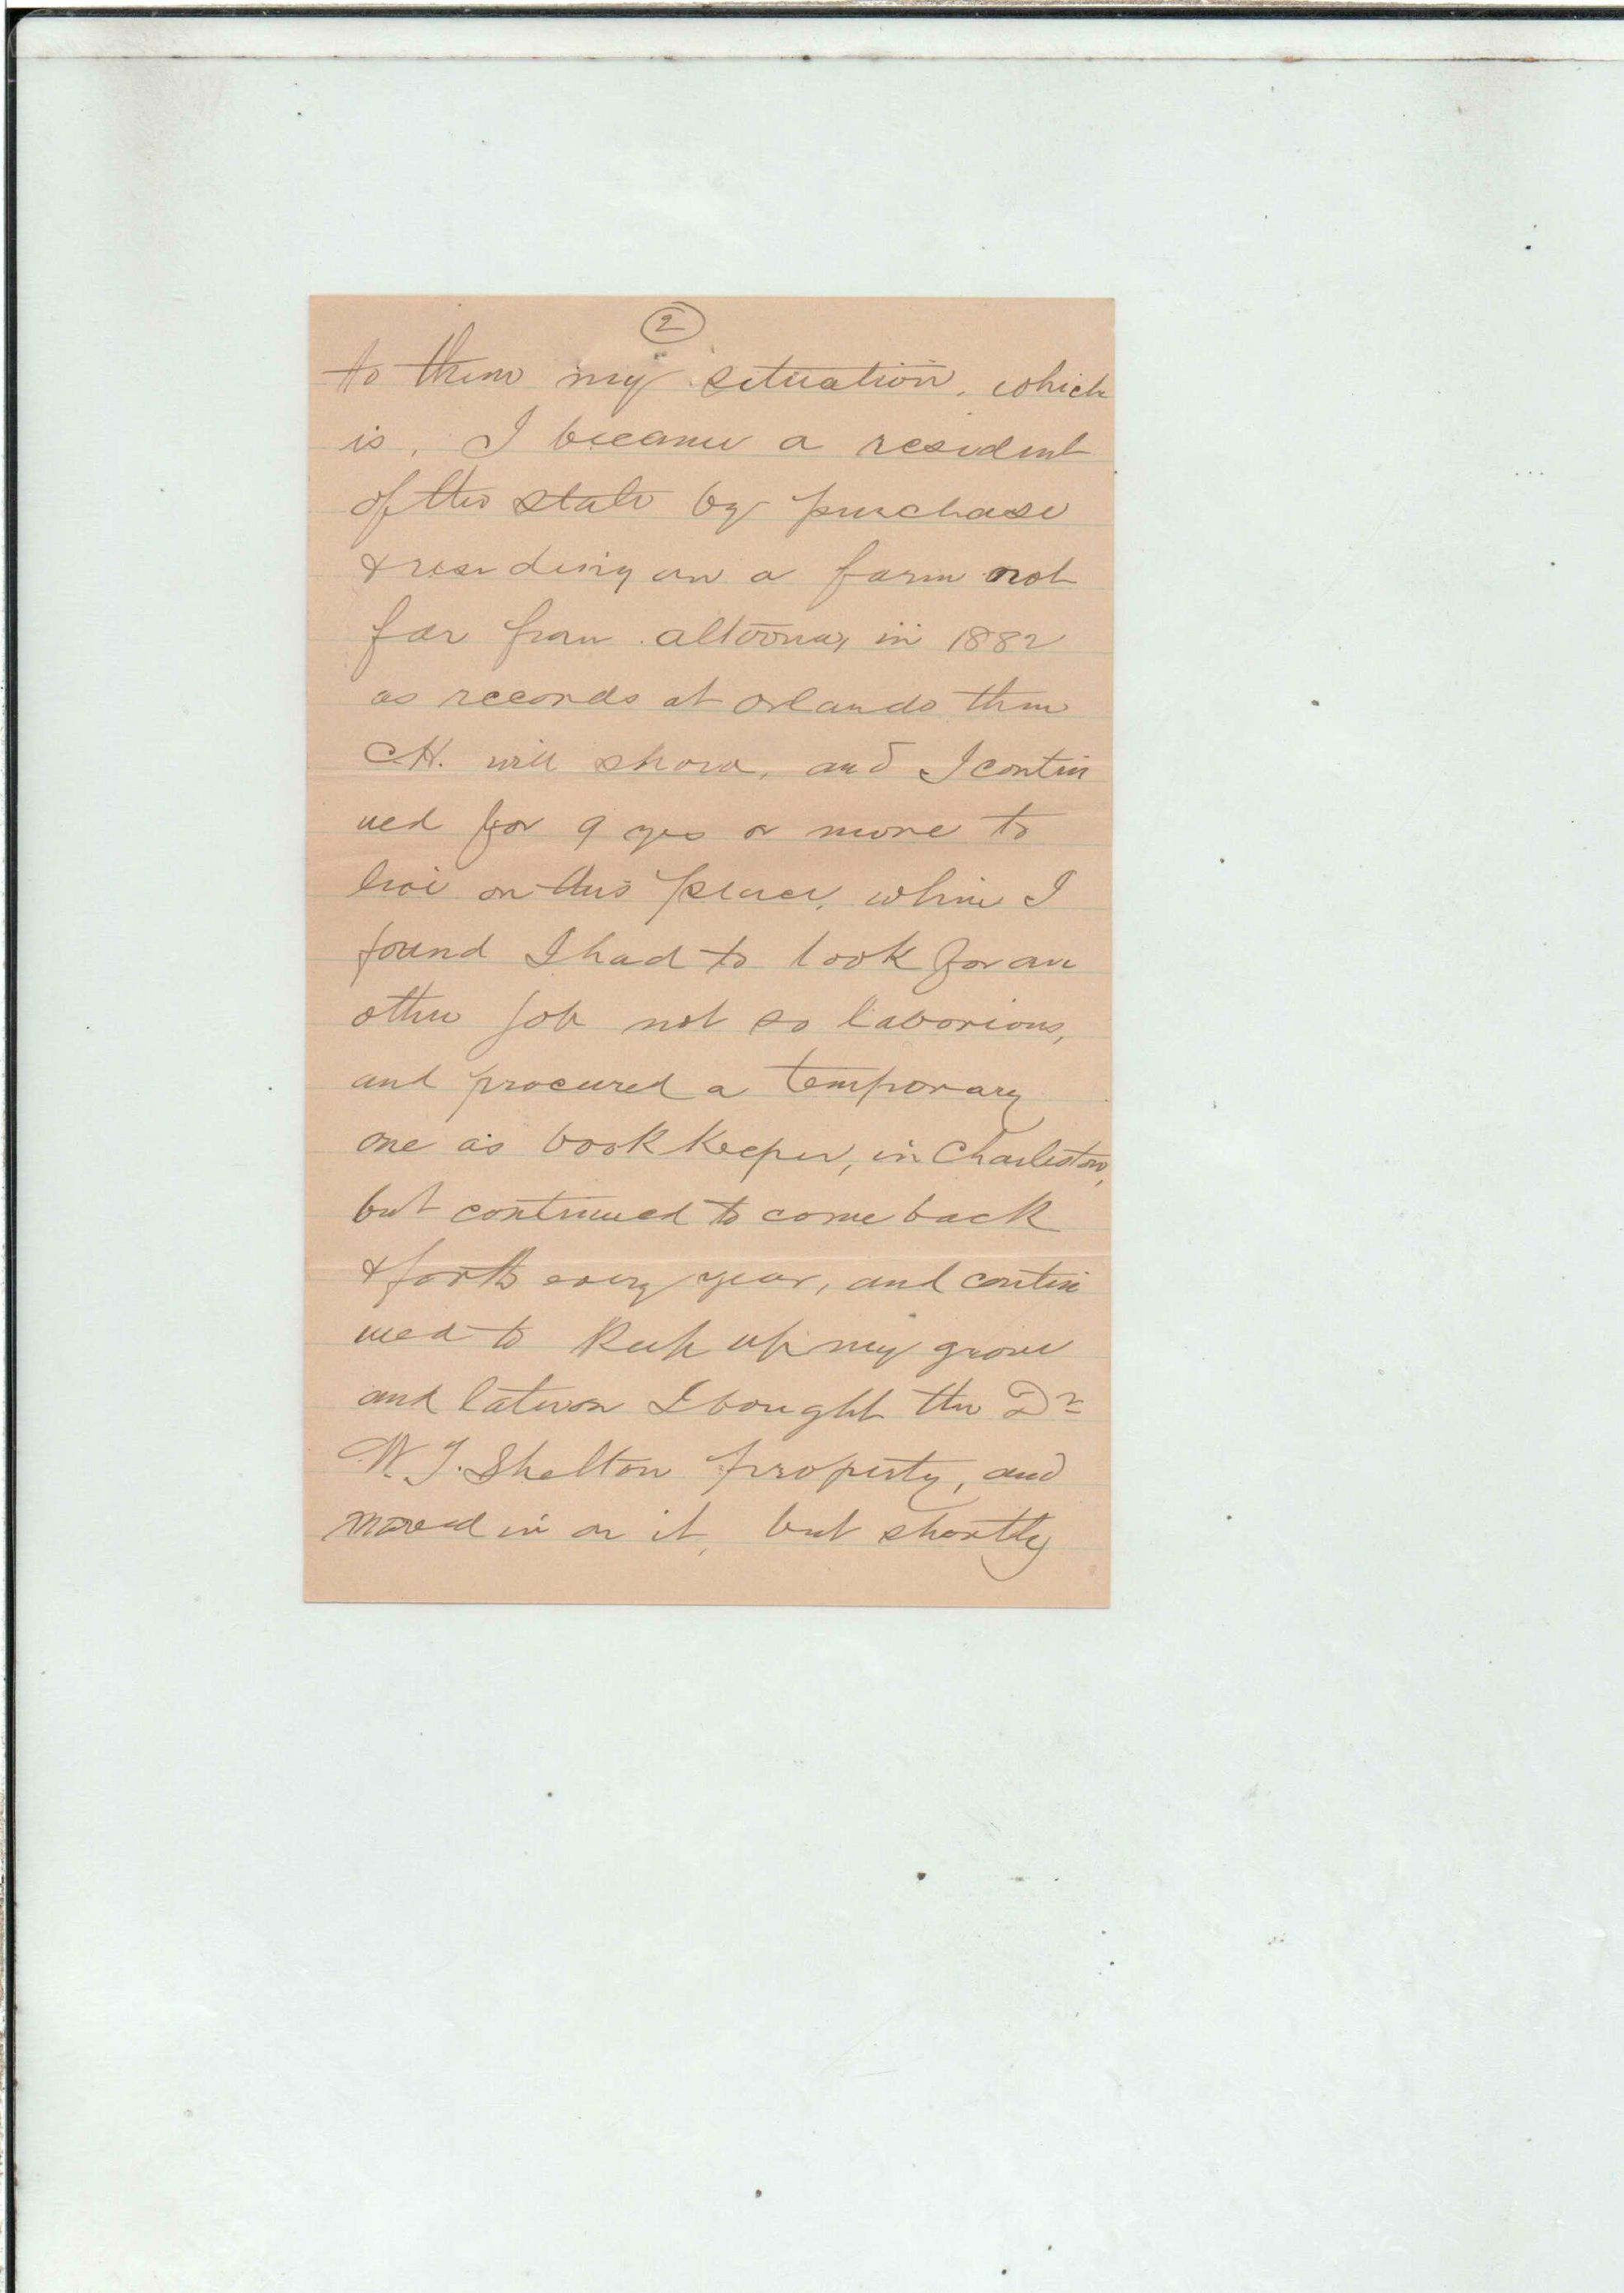 2
to them my situation, which
is, I became a resident
of this state by purchase
& residing on a farm not
far from Altoona, in 1882
as records at Orlando then
C.H. will show, and I contin
ued for 9 yrs or more to
live on this place, when I
found I had to look for an
other job not so laborious,
and procured a temporary
one as book keeper, in Charleston,
but continued to come back
& forth every year, and contin
ued to keep up my grove
and later on I bought the Dr
W. J. Shelton property, and
moved in on it, but shortly